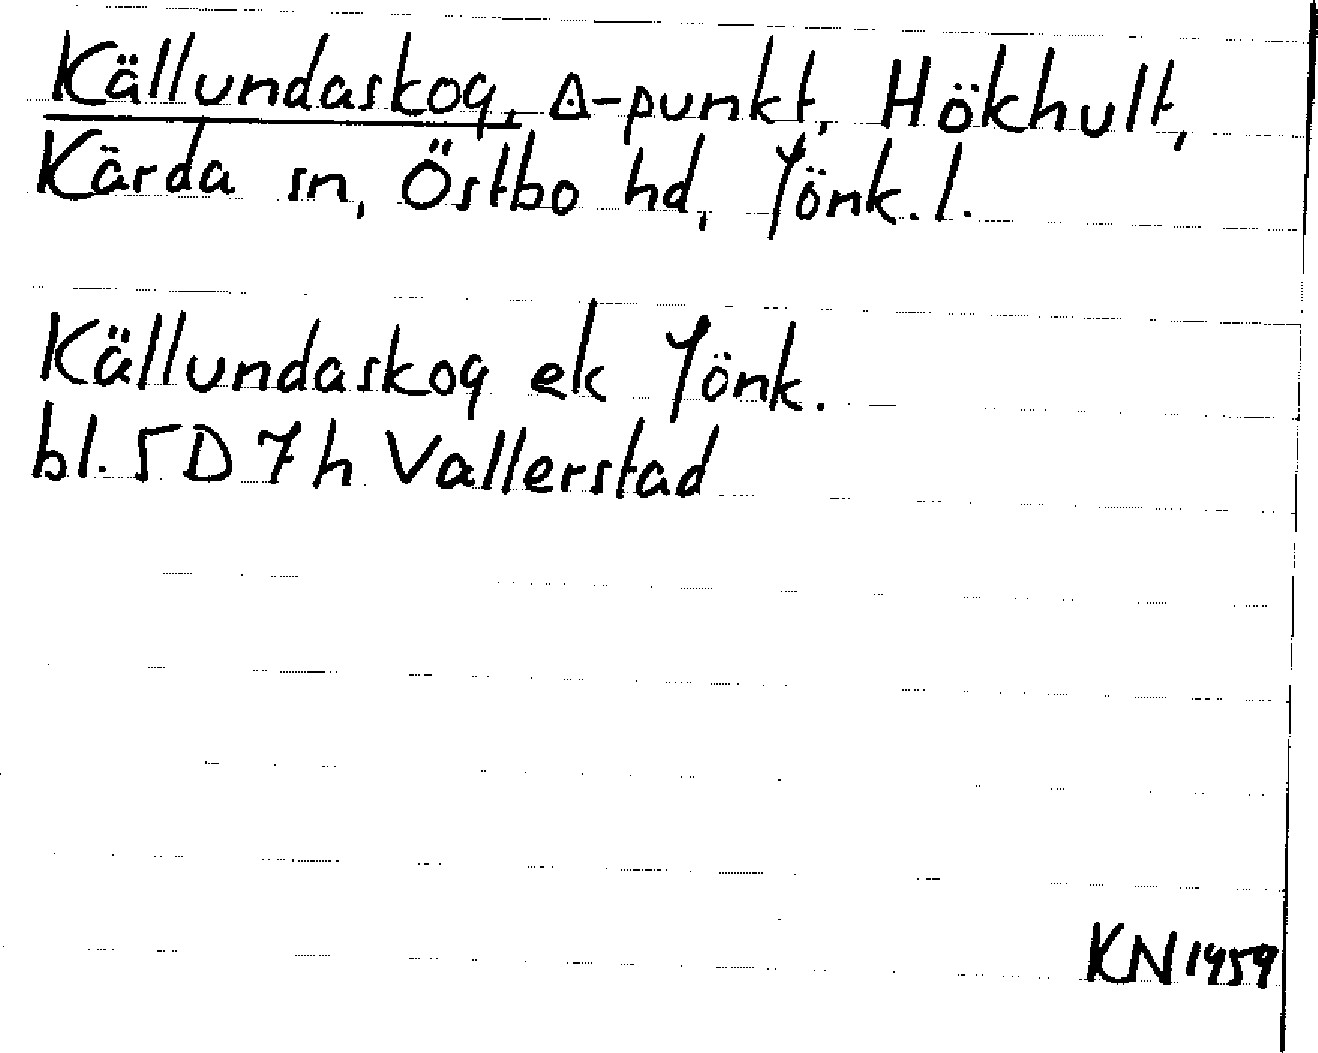 Källundaskog, Δ-punkt, Hökhult,
Kärda sn, Östbo hd, Jönk. l.
Källundaskog ek Jönk.
bl. 5D7h Vallerstad
KN 1959